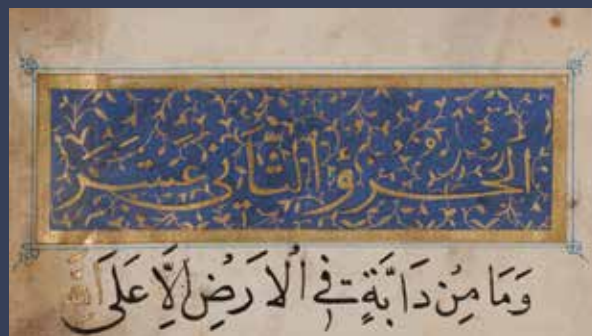 الجُزْؤُ الثَّانِي عَشَرَ
وَمَا مِنْ دَابَّةٍ فِي الْاَرْضِ اِلَّا عَلَى اللّٰهِ